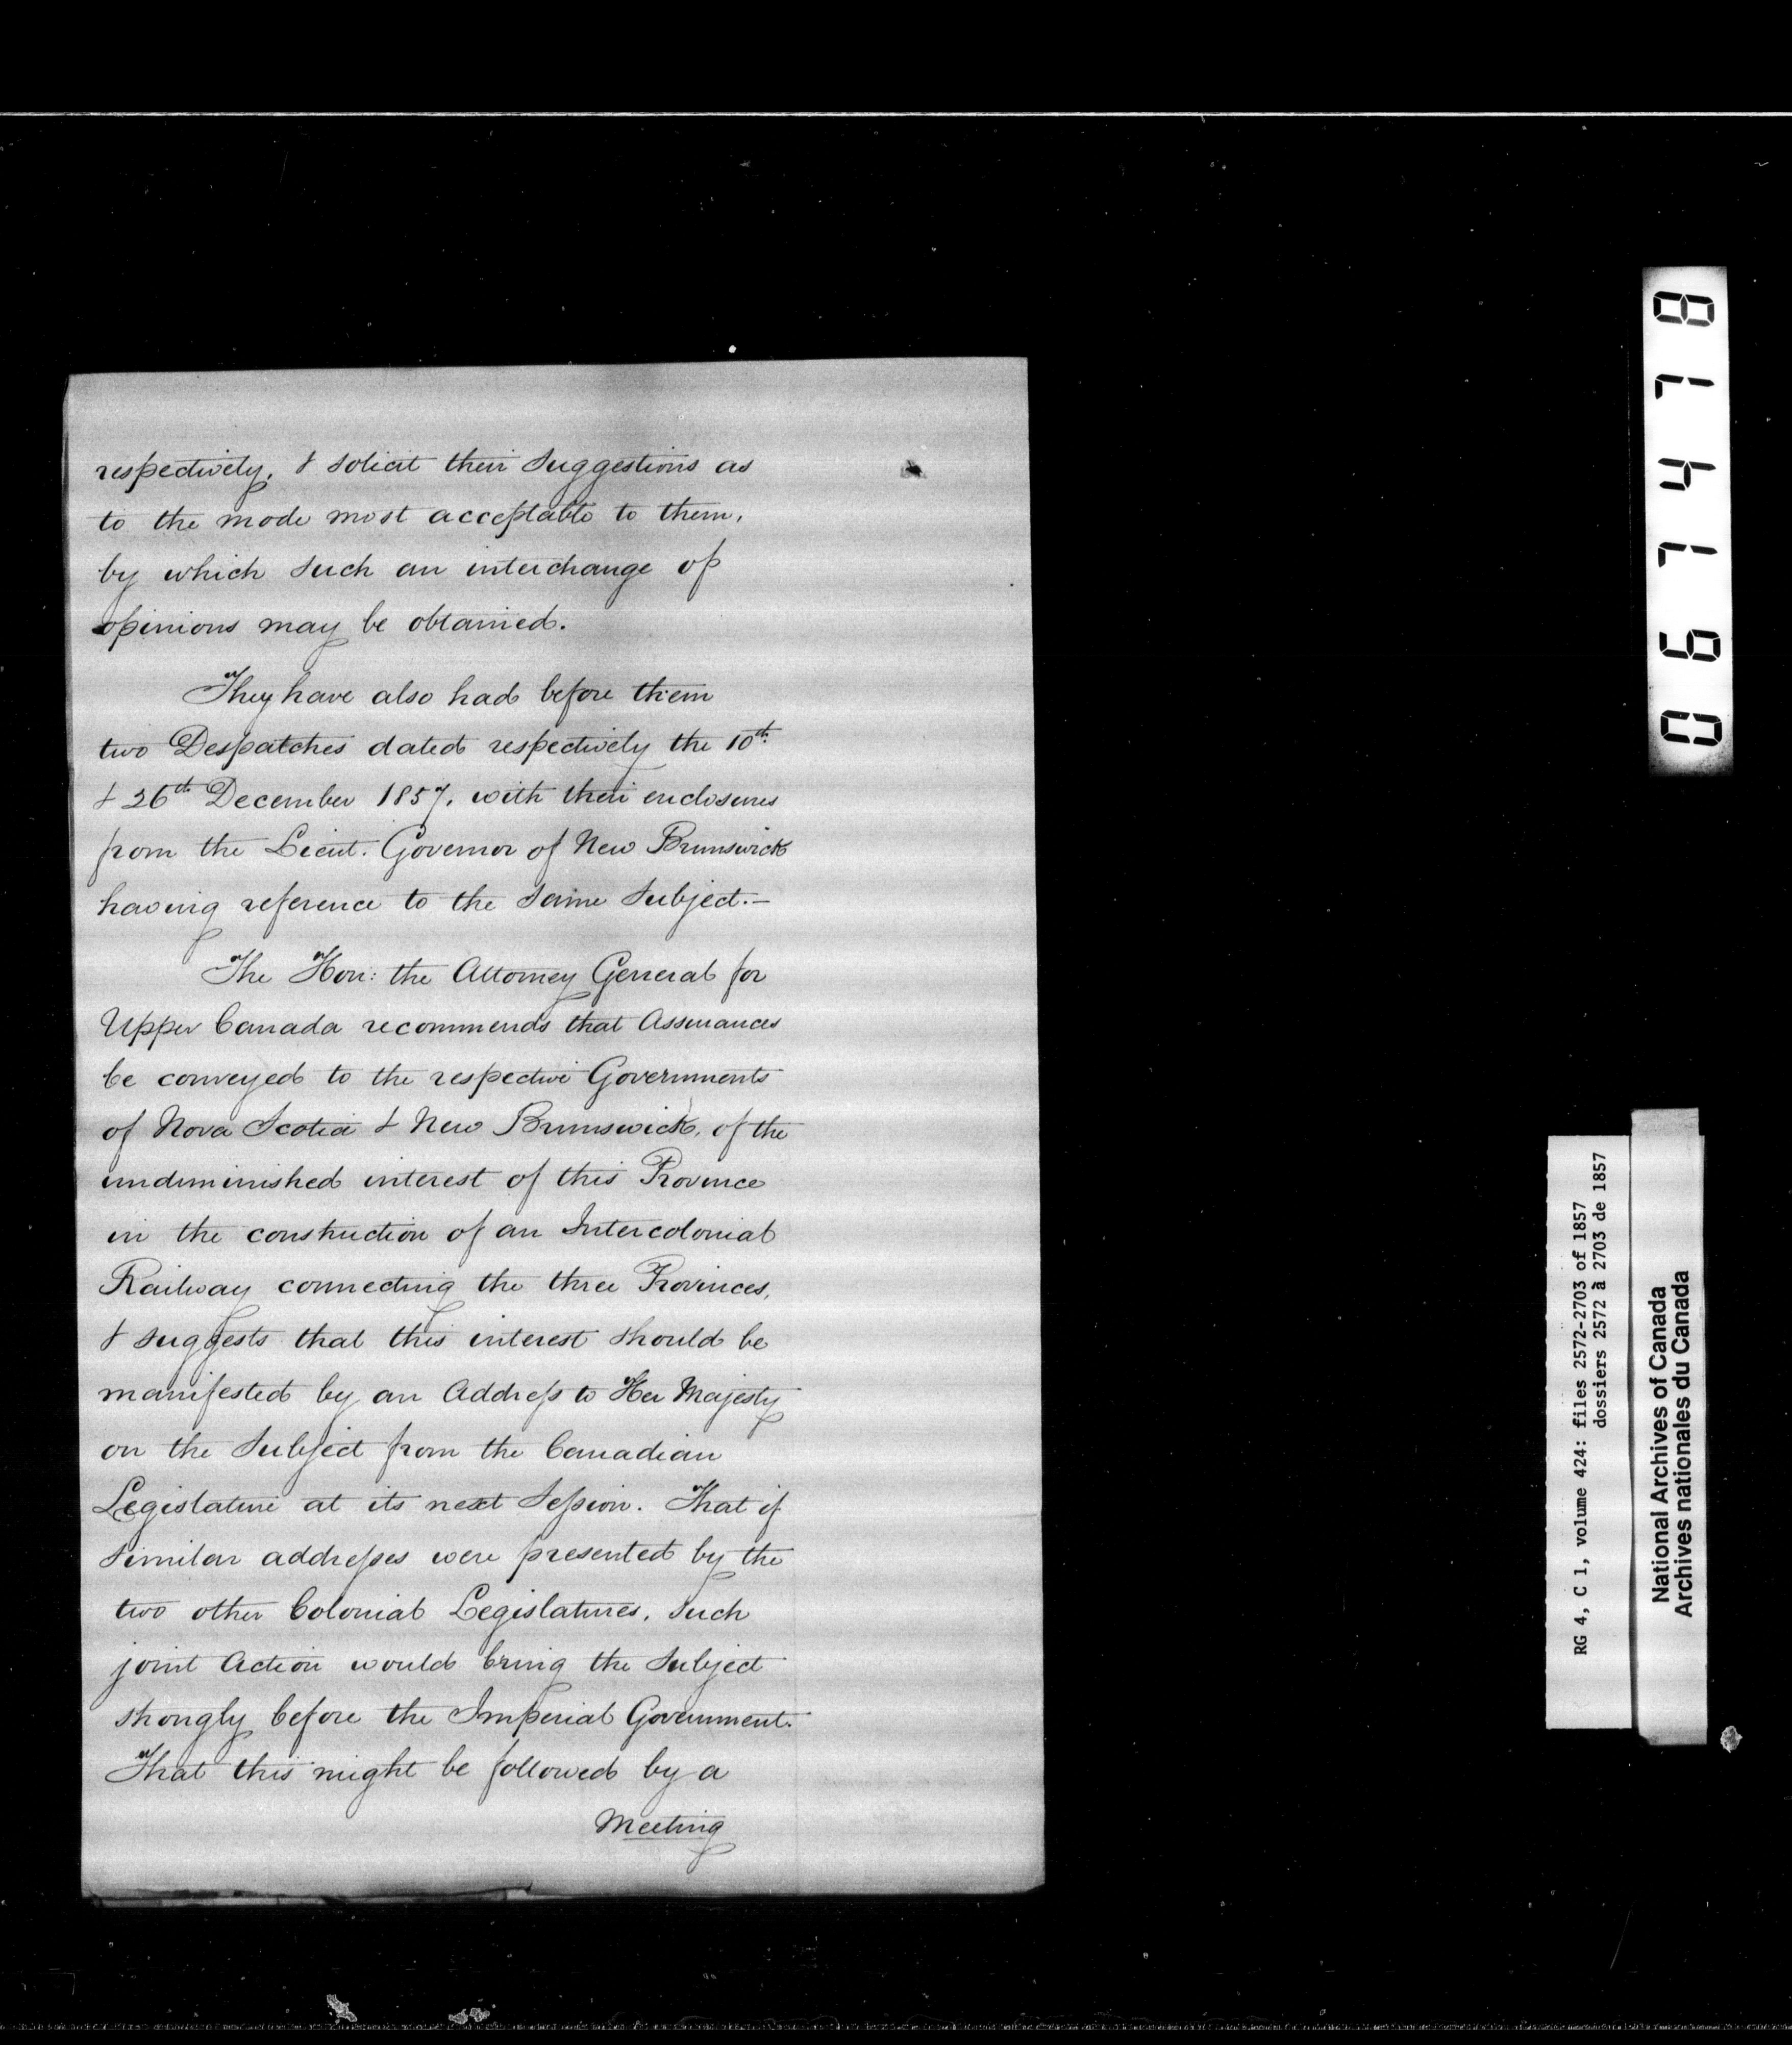 respectively, & solicit their suggestions as
to the mode most acceptable to them,
by which such an interchange of
opinions may be obtained.
They have also had before them
two Despatches dated respectively the 10th.
& 26th December 1857, with their enclosures
from the Lieut. Governor of New Brunswick
having reference to the same subject.—
The Hon: the Attorney General for
Upper Canada recommends that Assurances
be conveyed to the respective Governments
of Nova Scotia & New Brunswick, of the
undiminished interest of this Province
in the construction of an Intercolonial
Railway connecting the three Provinces,
& suggests that this interest should be
manifested by an Address to Her Majesty
on the Subject from the Canadian
Legislature at its next Session. That if
similar addresses were presented by the
two other Colonial Legislatures, such
joint Action would bring the subject
strongly before the Imperial Government.
That this might be followed by a
Meeting
067478
RG 4, C 1, volume 424: files 2572-2703 of 1857
dossiers 2572 à 2703 de 1857
National Archives of Canada
Archives nationales du Canada